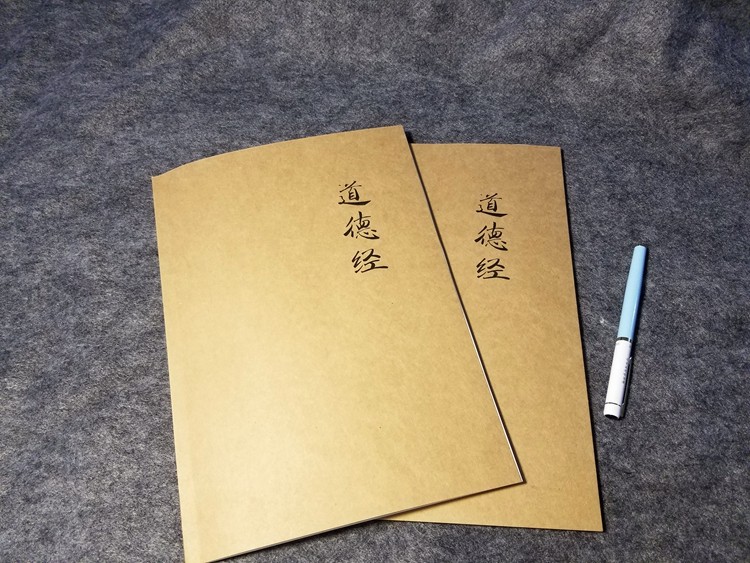 道德经
道德经